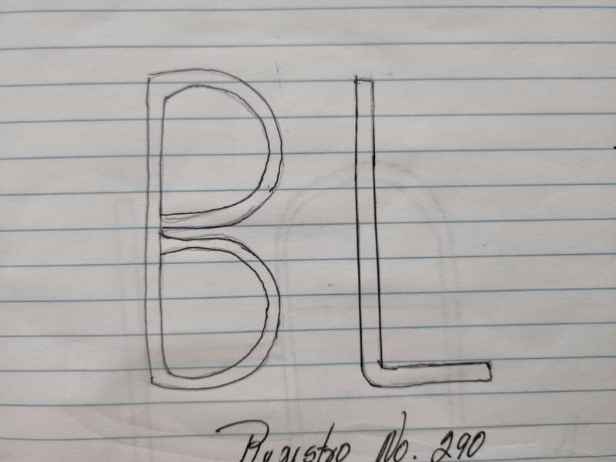 BL
Registro No. 290